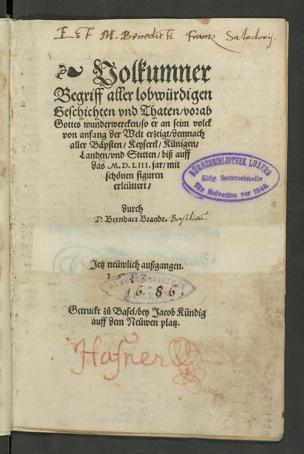 E & F M. Benedicti Franz Salodorij
Volkumner
Begriff aller lobwürdigen
Geschichten vnd Thaten/vorab
Gottes wunderwercken/so er an seim volck
von anfang der Welt erzeigt/demnach
aller Bäpsten/Keysern/Künigen/
Landen/vnd Stetten/biß auff
das M. D. LIII. jar/mit
schönen figuren
erleütert/
durch
D. Bernhart Brandt.
BÜRGERBIBLIOTHEK LUZERN
Eidg. Sammelstelle
für Helvetica vor 1848
Jetz neüwlich außgangen.
1686.
Getruckt zů Basel/bey Jacob Kündig
auff dem Neüwen platz.
Hafner